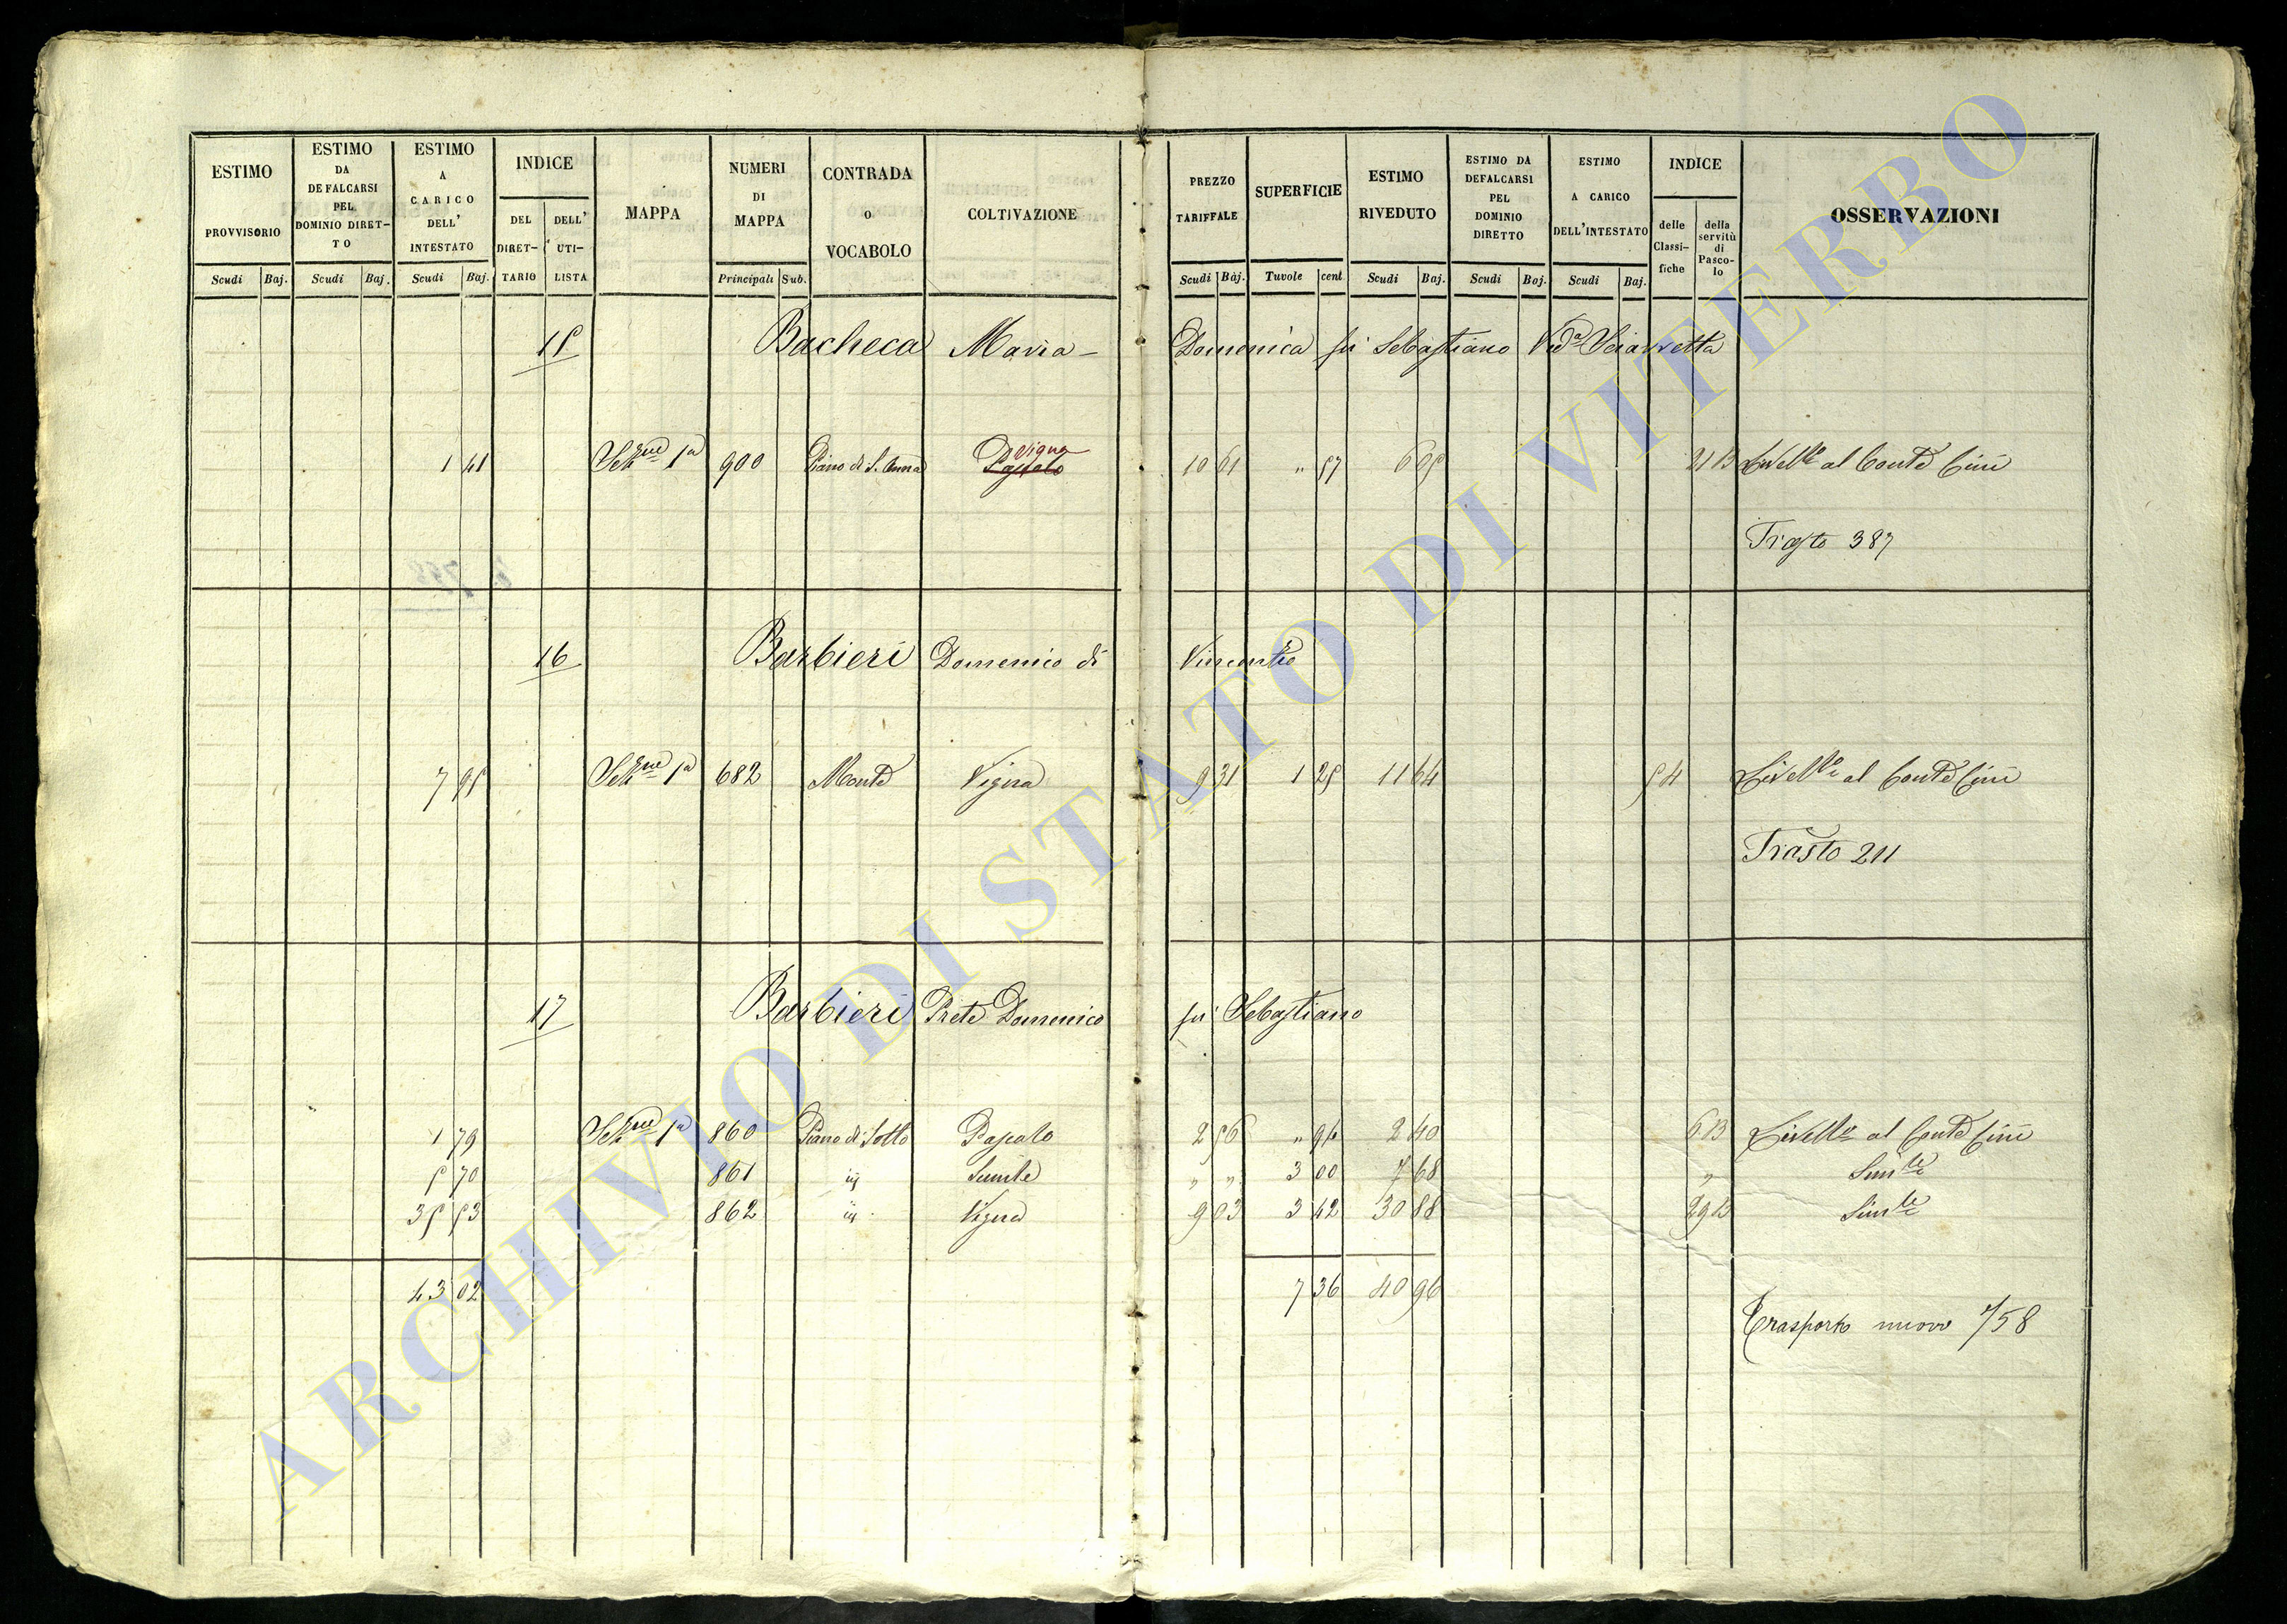 ESTIMO PROVVISORIO
Scudi Baj.
ESTIMO DA DEFALCARSI PEL DOMINIO DIRETTO
Scudi Baj.
ESTIMO A CARICO DELL' INTESTATO
Scudi Baj.
INDICE
DEL DIRET- TARIO
DELL' UTI- LISTA
MAPPA
NUMERI DI MAPPA
Principali Sub.
CONTRADA O VOCABOLO
COLTIVAZIONE
PREZZO TARIFFALE
Scudi Baj.
SUPERFICIE
Tavole cent.
ESTIMO RIVEDUTO
Scudi Baj.
ESTIMO DA DEFALCARSI PEL DOMINIO DIRETTO
Scudi Baj.
ESTIMO A CARICO DELL'INTESTATO
Scudi Baj.
INDICE
delle Classi- fiche
della servitù di Pasco- lo
OSSERVAZIONI
15 Bacheca Maria Domenica fu Sebastiano Vedª
1 41 Sezne 1ª 900 Piano di S. Anna Vigna Pascolo 10 61 " 57 6 05 21 B Livello al Conte Cini
Trasto 387
16 Barbieri Domenico di Vincenzo
7 95 Sezne 1ª 682 Monte Vigna 9 31 1 25 11 64 54 Livello al Conte Cini
Trasto 211
17 Barbieri Prete Domenico fu Sebastiano
1 79 Sezne 1ª 860 Piano di Sotto Pascolo 2 56 " 94 2 40 6 B Livello al Conte Cini
5 70 861 Simile " " 3 00 7 68 " Simle
35 53 862 Vigna 9 03 3 42 30 88 29 B Simle
43 02 7 36 40 96
Trasporto nuovo 758
ARCHIVIO DI STATO DI VITERBO